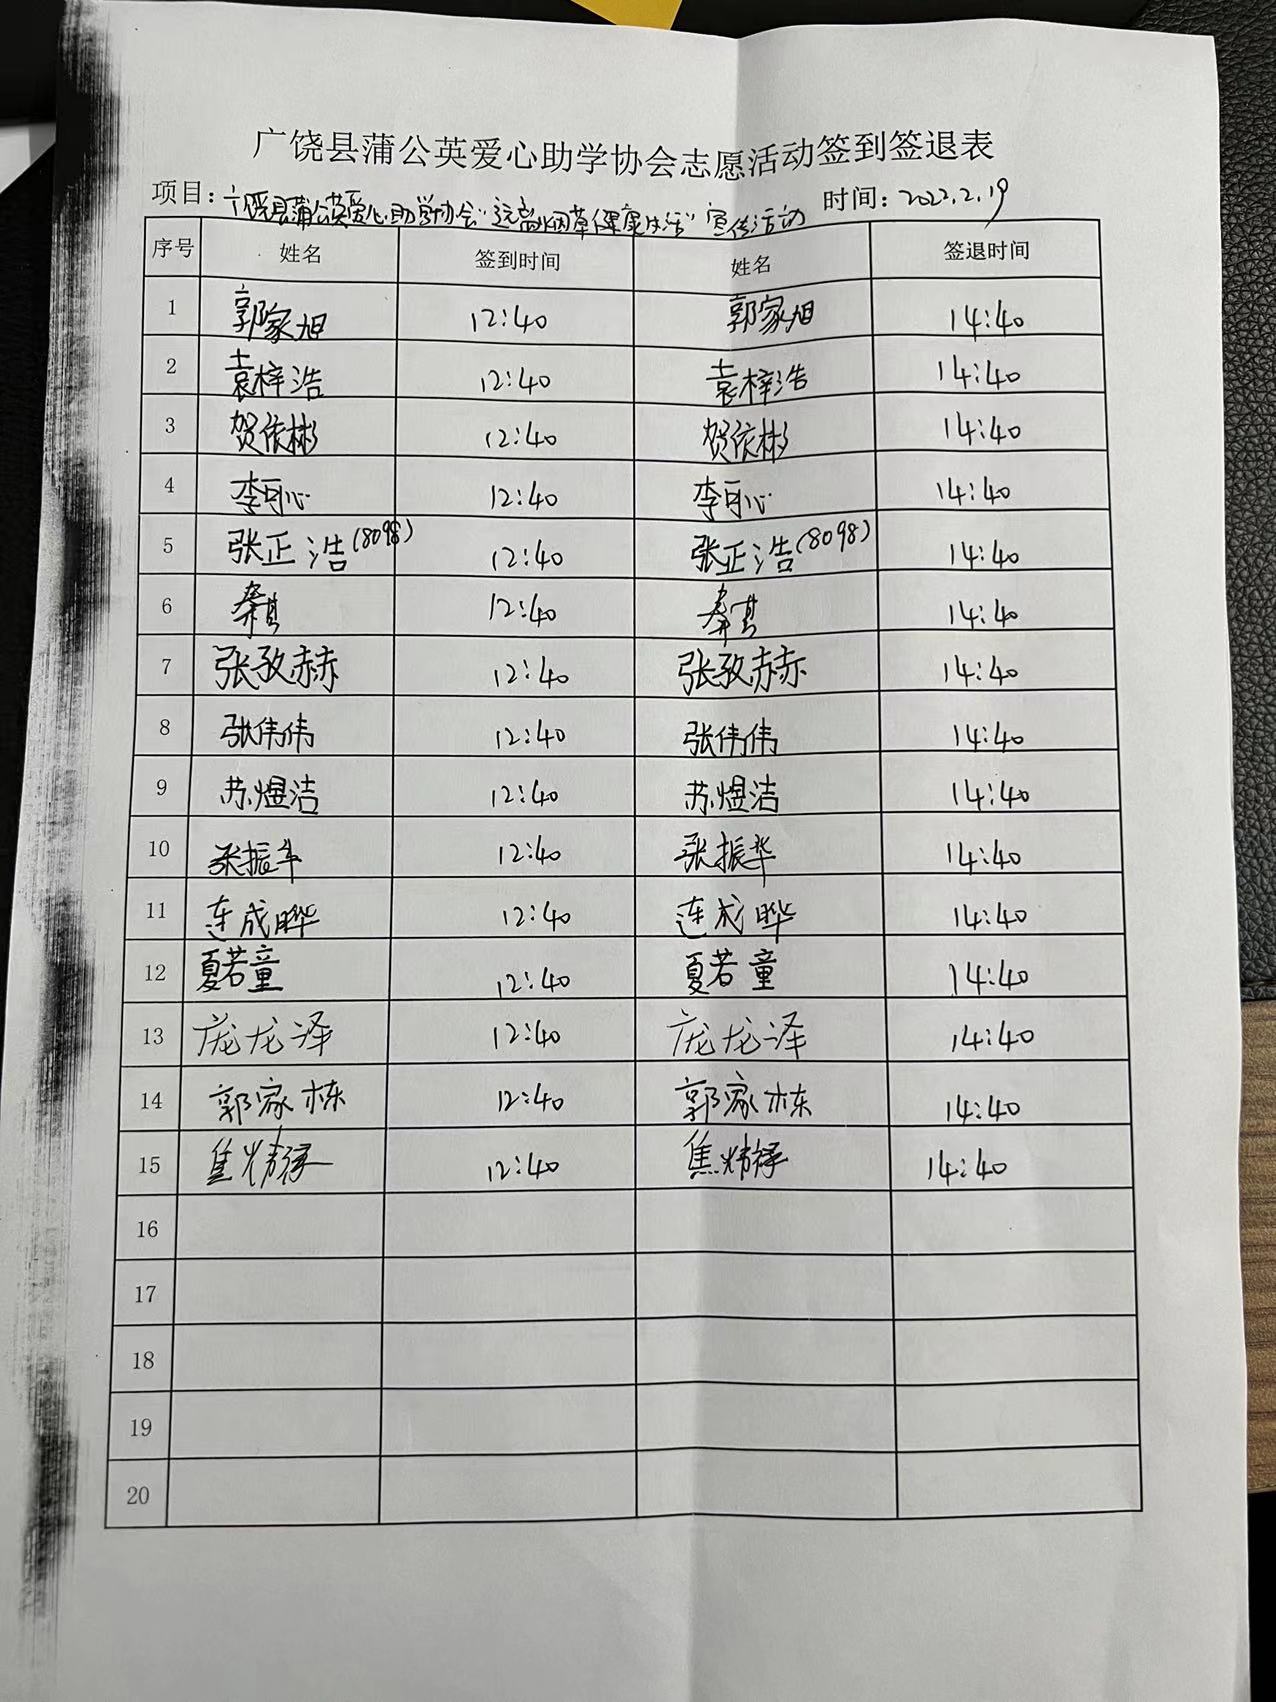 广饶县蒲公英爱心助学协会志愿活动签到签退表
项目：广饶县蒲公英爱心助学协会“远离烟草健康生活”宣传活动 时间：2022.2.19
序号 姓名 签到时间 姓名 签退时间
1 郭家旭 12:40 郭家旭 14:40
2 袁梓浩 12:40 袁梓浩 14:40
3 贺依彬 12:40 贺依彬 14:40
4 李可心 12:40 李可心 14:40
5 张正浩(8098) 12:40 张正浩(8098) 14:40
6 12:40 14:40
7 张孜赫 12:40 张孜赫 14:40
8 张伟伟 12:40 张伟伟 14:40
9 苏煜洁 12:40 苏煜洁 14:40
10 张振华 12:40 张振华 14:40
11 连成晔 12:40 连成晔 14:40
12 夏若童 12:40 夏若童 14:40
13 庞龙泽 12:40 庞龙泽 14:40
14 郭家栋 12:40 郭家栋 14:40
15 12:40 14:40
16
17
18
19
20